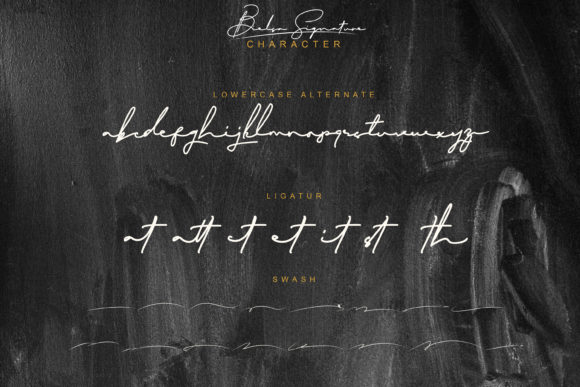 Bielsa Signature
CHARACTER
LOWERCASE ALTERNATE
abcdefghijklmnopqrstuvwxyz
LIGATUR
at att ct et it st th
SWASH